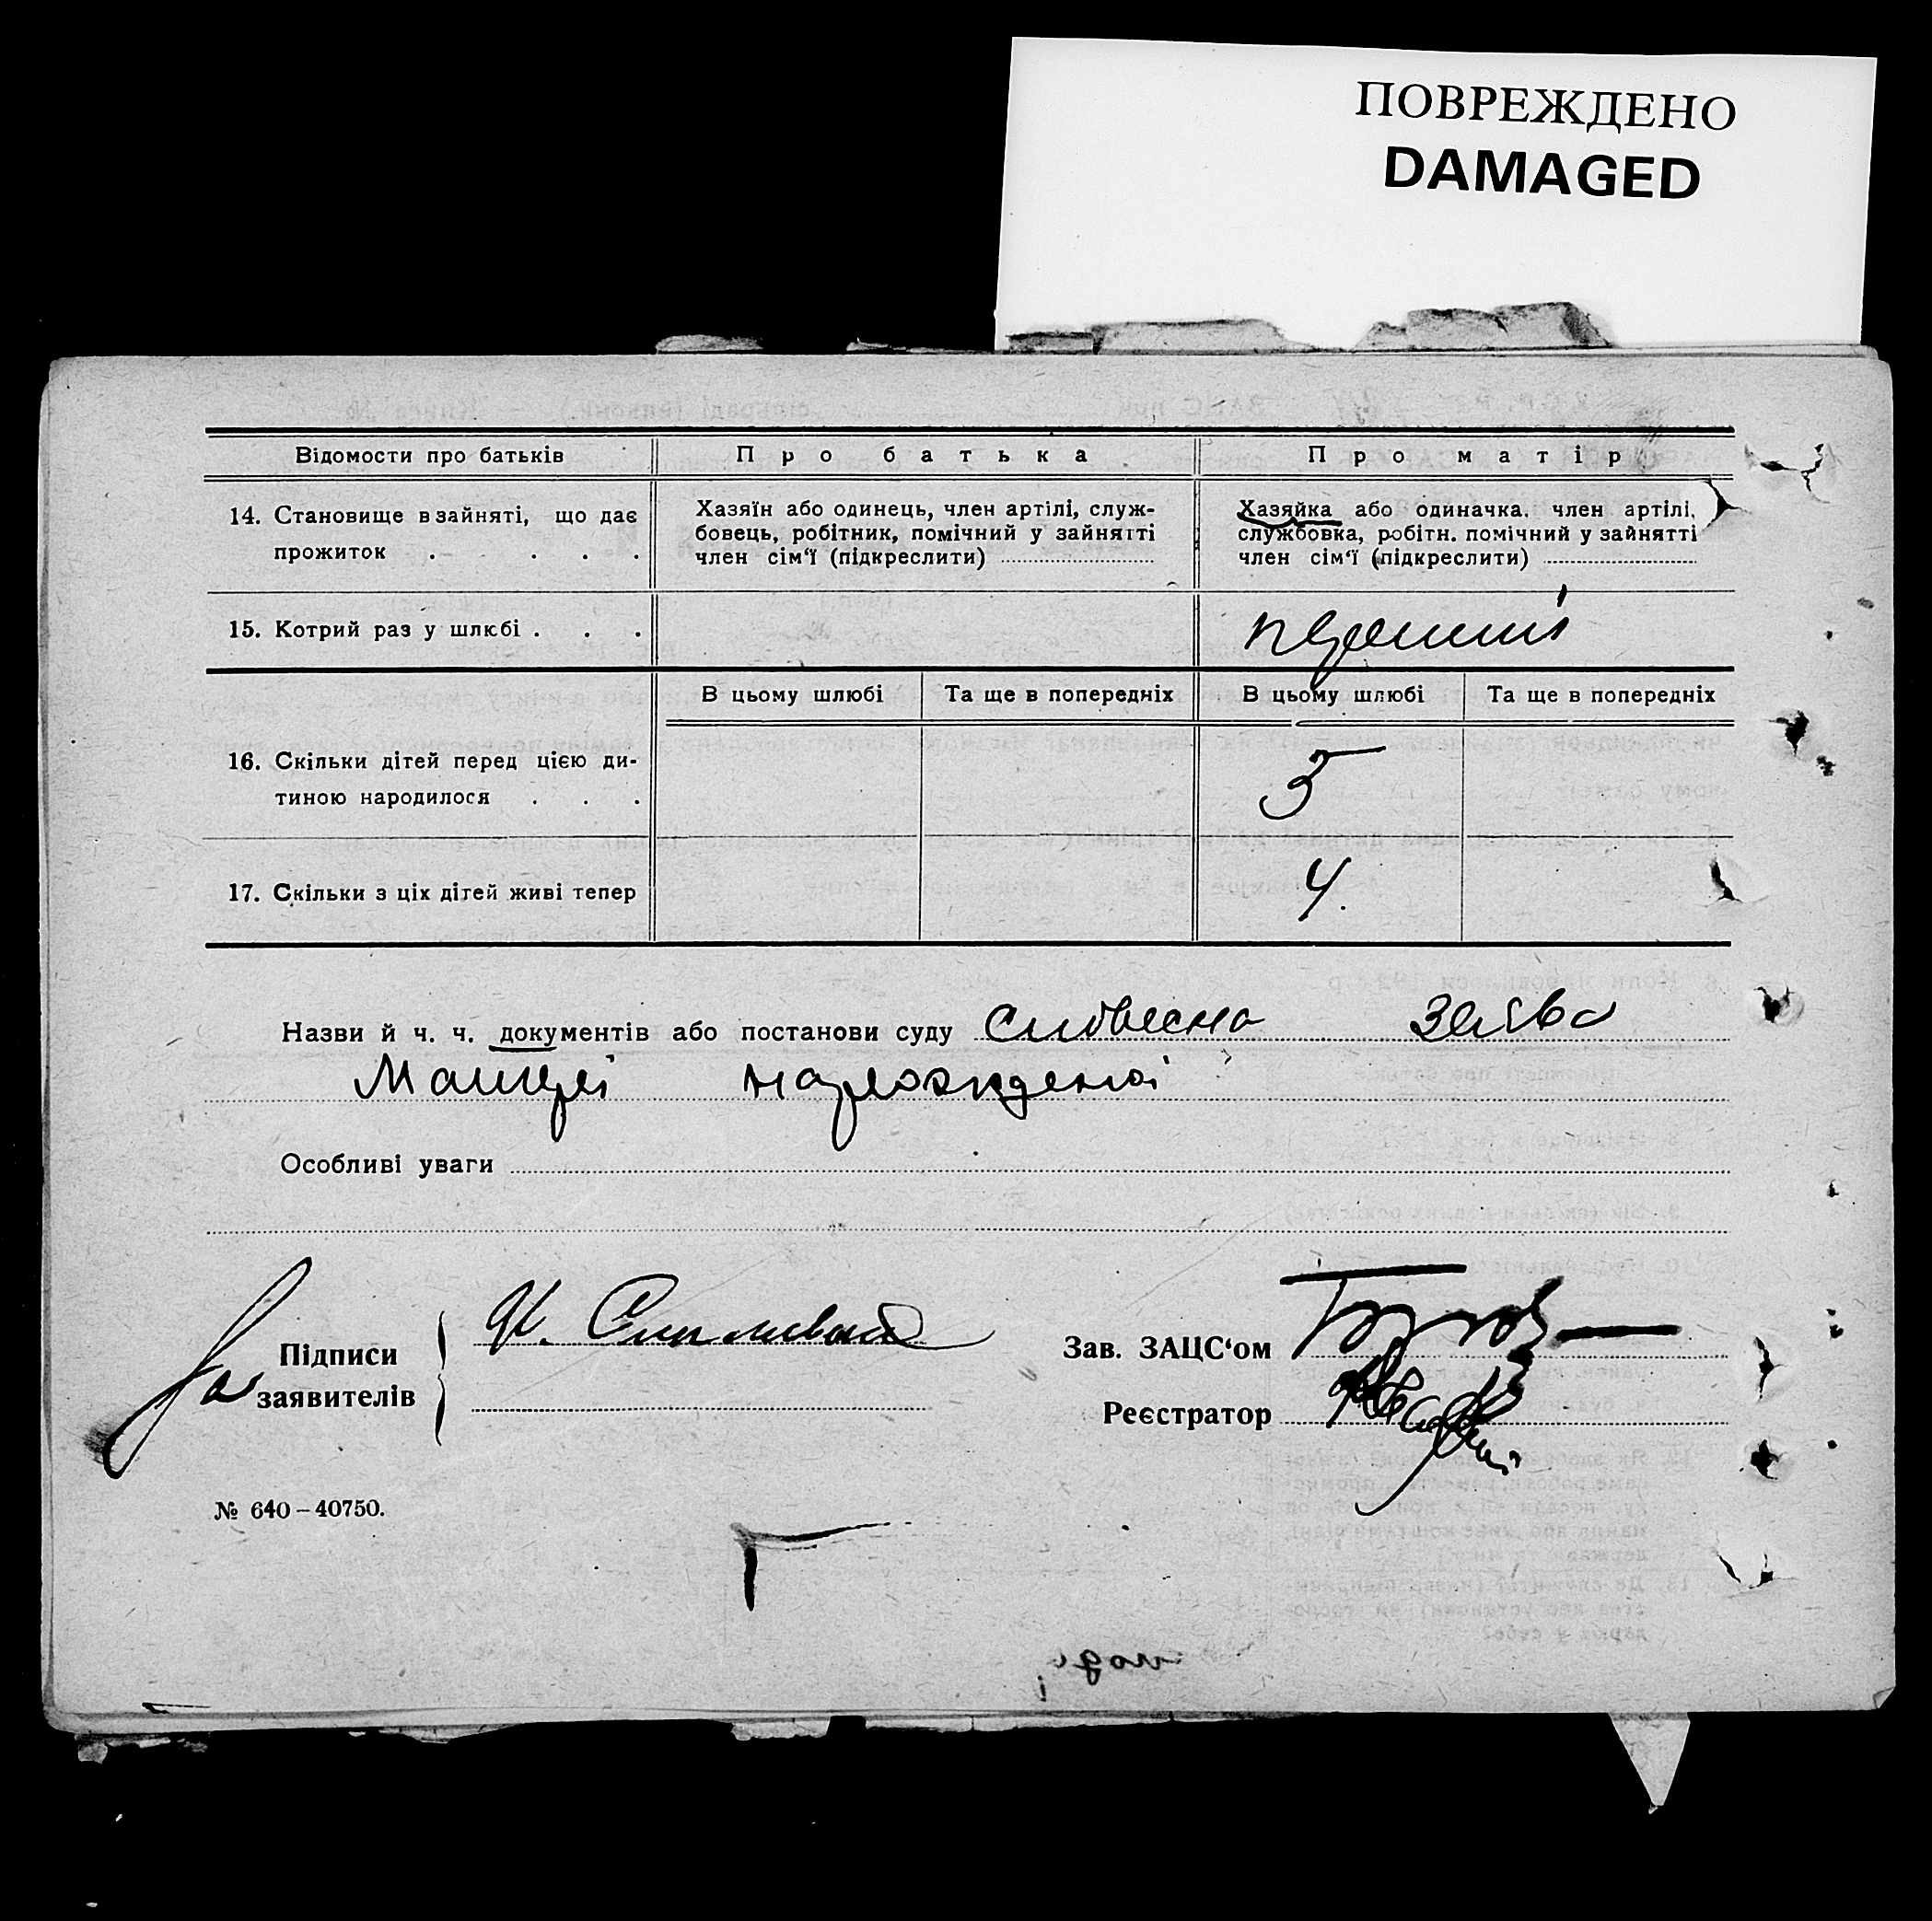 ПОВРЕЖДЕНО
DAMAGED
Відомости про батьків
Про батька
Про матір
14. Становище в зайняті, що дає
прожиток . . . .
Хазяїн або одинець, член артілі, служ-
бовець, робітник, помічний у зайнятті
член сім‘ї (підкреслити)
Хазяйка або одиначка, член артілі,
службовка, робітн. помічний у зайнятті
член сім‘ї (підкреслити)
15. Котрий раз у шлюбі . . .
первший
В цьому шлюбі
Та ще в попередніх
В цьому шлюбі
Та ще в попередніх
16. Скільки дітей перед цією ди-
тиною народилося . . .
5
17. Скільки з ціх дітей живі тепер
4.
Назви й ч. ч. документів або постанови суду словесна заява
Матері нарожденої
Особливі уваги
Підписи
заявителів
Зав. ЗАЦС‘ом
Реєстратор
№ 640–40750.